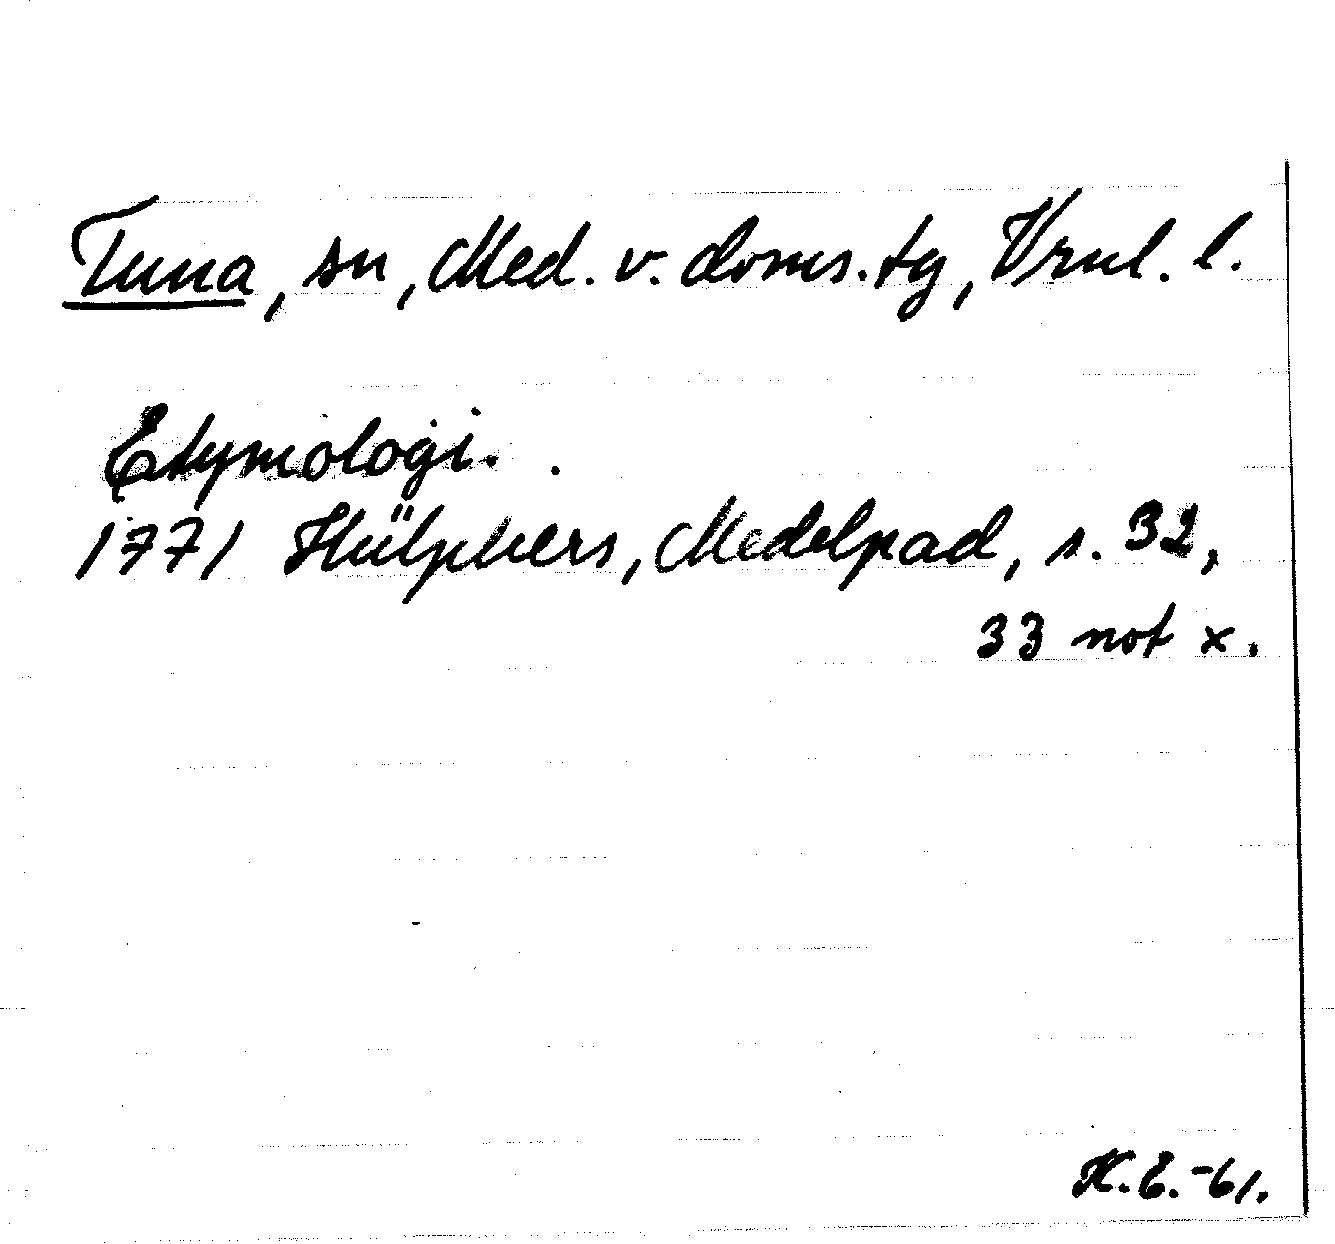 Tuna, sn, Med. v. doms.tg, Vrnl. l.
Etymologi.
1771 Hülphers, Medelpad, s. 32,
33 not x.
K.E.-61.